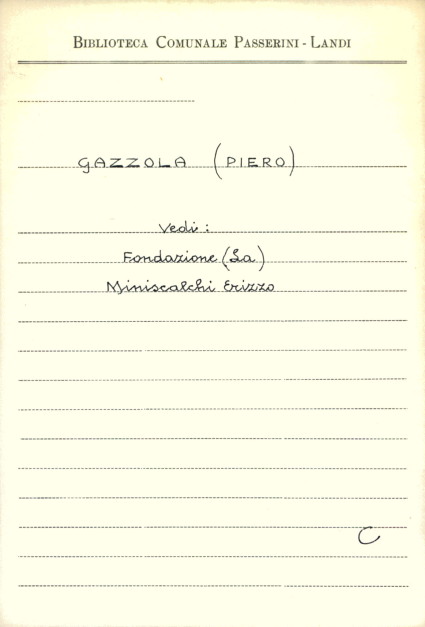 BIBLIOTECA COMUNALE PASSERINI - LANDI
GAZZOLA (PIERO)
Vedi:
Fondazione (La)
Miniscalchi Erizzo
C